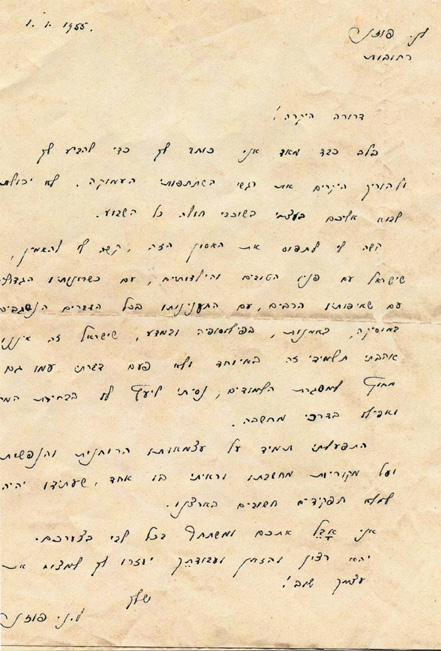 1.1.1955.
רחובות
דרורה היקרה!
בלב כבד מאד אני כותב לך כדי להביע לך
ולהוריך היקרים את רגשי השתתפותי העמוקה. לא יכולתי
לבוא אליכם בעצמי בשוכבי חולה כל השבוע.
קשה לי לתפוס את האסון הזה, קשה לי להאמין,
שישראל עם פניו הטובים והילדותיים, עם כשרונותיו הגדולים
עם שאיפותיו הרבים, עם התענינותו בכל הדברים הנשגבים
במוסיקה, באמנות, בפילוסופיה ובמדע, שישראל זה איננו
אהבתי תלמידי זה במיוחד ולא פעם דברתי עמו גם
מחוץ למסגרת הלמודים, נסיתי ליעץ לו בבחירת
ואפילו בדרכי מחשבה.
התפעלתי תמיד על עצמאותו הרוחנית והנפשית
ועל מקוריות מחשבתו וראיתי בו אחד, שעתידו יהיה
למלא תפקידים חשובים בארצנו.
אני אבל אתכם ומשתתף בכל לבי בצערכם.
יהא רצון והזמן ועבודתך יעזרו לך למצוא את
עצמך שוב!
שלך